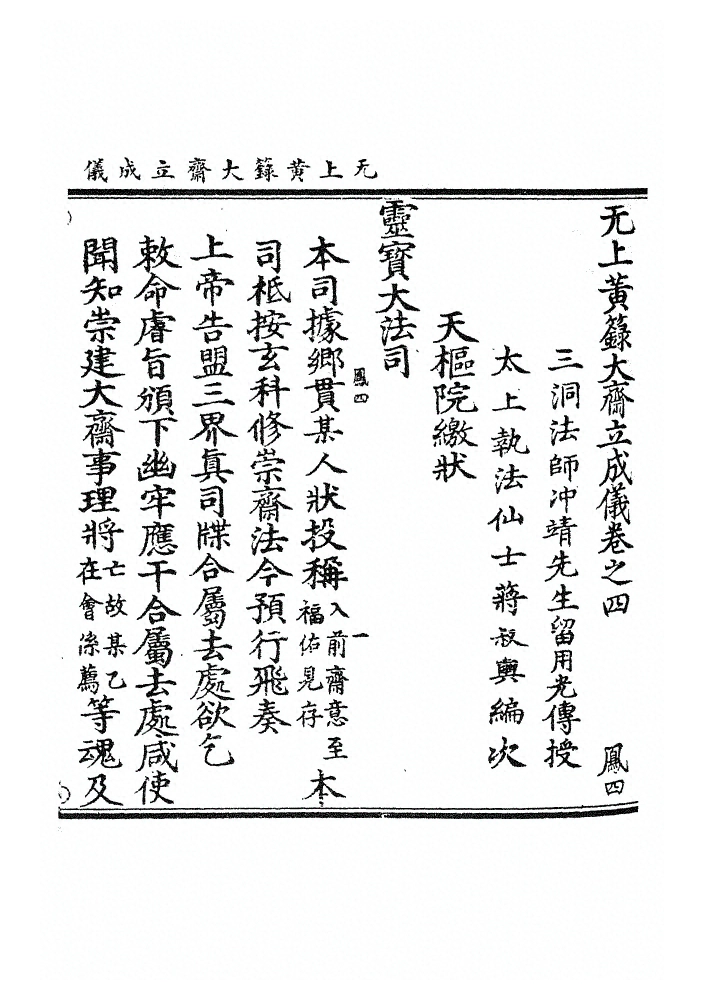 无上黃籙大齋立成儀
无上黃籙大齋立成儀卷之四 鳳四
三洞法師冲靖先生留用光傳授
太上執法仙士蔣叔輿編次
天樞院繳狀
靈寶大法司
鳳四 一
本司據鄉貫某人狀投稱入前齋意至福佑見存本
司柢按玄科修崇齋法今預行飛奏
上帝告盟三界真司牒合屬去處欲乞
敕命膚旨頒下幽牢應干合屬去處咸使
聞知崇建大齋事理將亡故某乙在會係薦等魂及